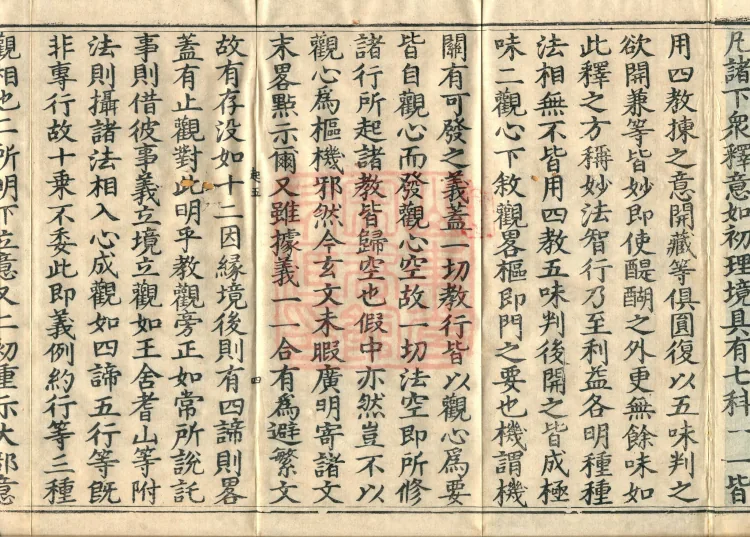 凡諸下衆釋意如初理境具有七科一一皆
用四教揀之意開藏等俱圓復以五味判之
欲開兼等皆妙即使醍醐之外更無餘味如
此釋之方稱妙法智行乃至利益各明種種
法相無不皆用四教五味判後開之皆成極
味二觀心下敘觀畧樞即門之要也機謂機
關有可發之義蓋一切教行皆以觀心爲要
皆自觀心而發觀心空故一切法空即所修
諸行所起諸教皆歸空也假中亦然豈不以
觀心爲樞機邪然今玄文未暇廣明寄諸文
末畧點示爾又雖據義一一合有爲避繁文
起五
四
故有存没如十二因緣境後則有四諦則畧
蓋有止觀對此明乎教觀旁正如常所說託
事則借彼事義立境立觀如王舍耆山等附
法則攝諸法相入心成觀如四諦五行等旣
非專行故十乘不委此即義例約行等三種
觀相也二所明下立意又二初重示大部意